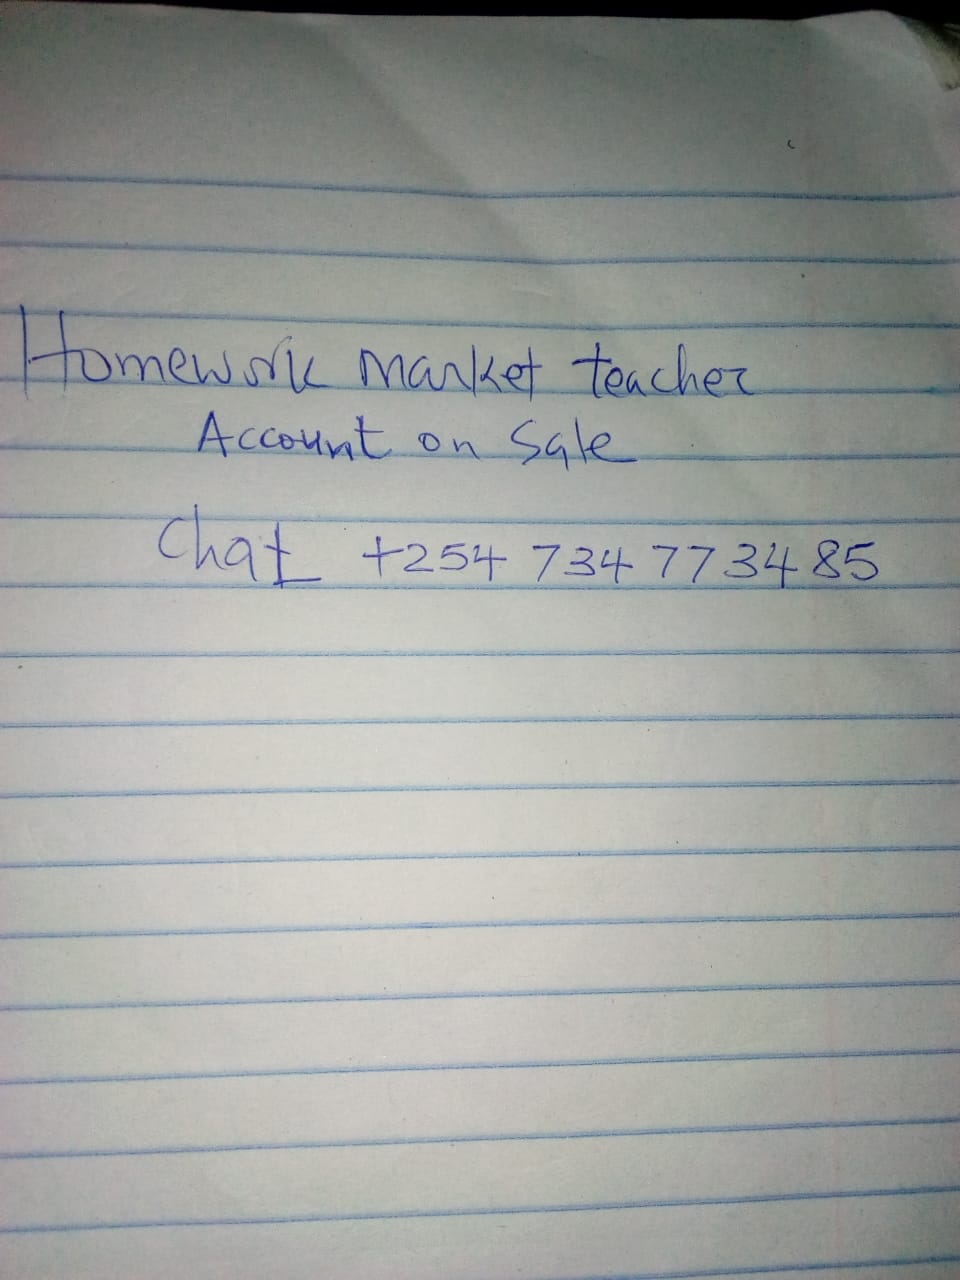 Homework market teacher
Account on Sale
Chat +254 734 773485